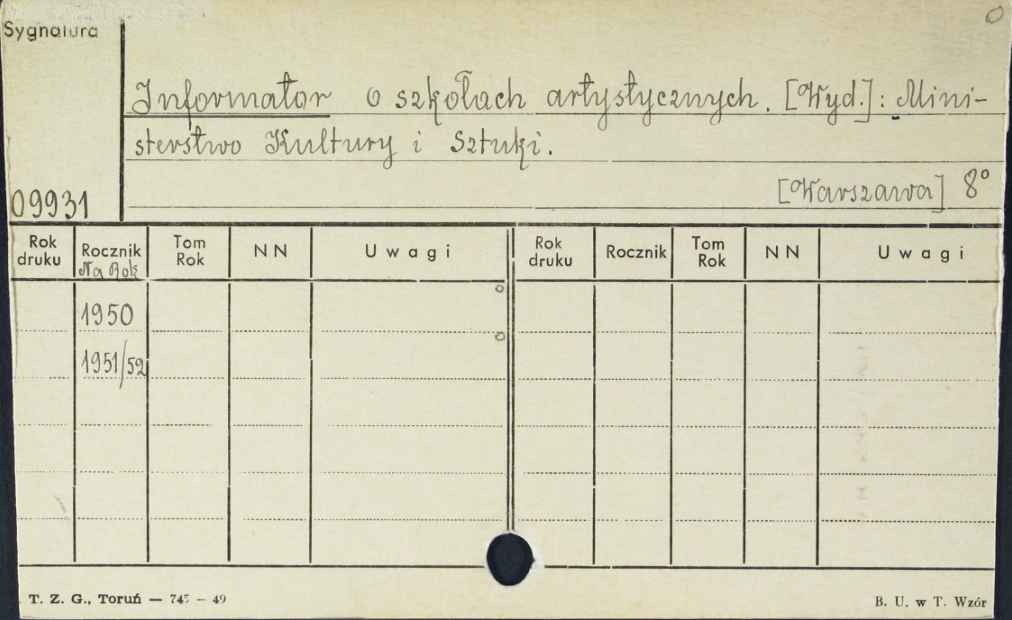 Sygnatura
Informator o szkołach artystycznych. [Wyd.]: Mini-
sterstwo Kultury i Sztuki.
[Warszawa] 8°
09931
Rok druku Rocznik Na Rok Tom Rok NN Uwagi Rok druku Rocznik Tom Rok NN Uwagi
1950
1951/52
T. Z. G., Toruń — 745 – 49
B. U. w T. Wzór